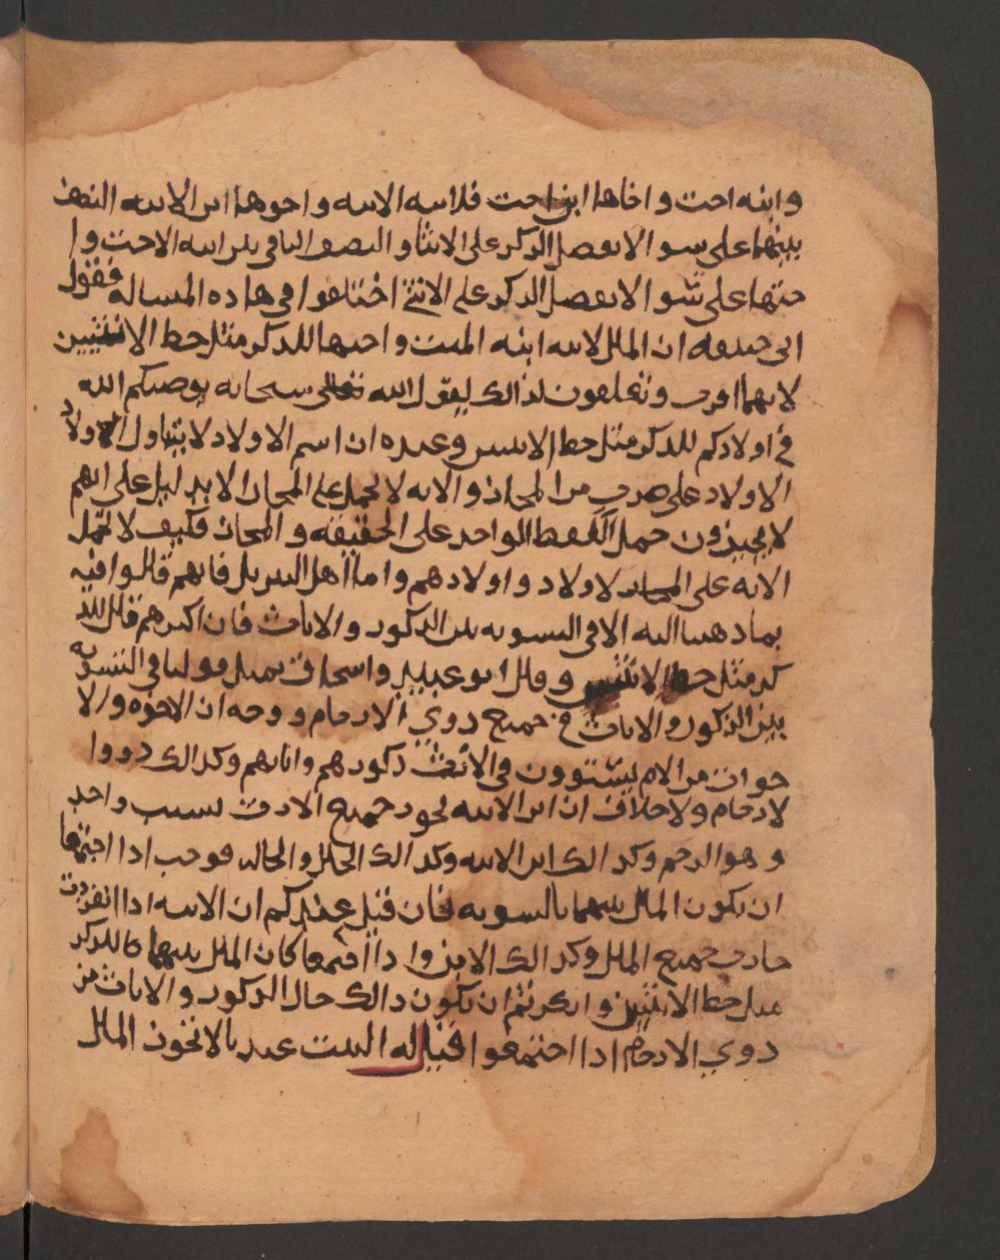 وابنه احت و اخاها ابن احت فلابنه الابنه و اخوها ابن الابنه النصف
بينهما على سو الا بفصل الذكر على الانثا و النصف الباقي بين ابنه الاخت وا
ختها على سو الا بفصل الذكر على الانثى اختلفوا في هاده المساله فقول
ابي حنيفه ان المال لابنه ابنه الميت و اخيها للذكر مثل حظ الانثيين
لانهما اقرب و تعلقون لذالك لقول الله تعالى سبحانه يوصيكم الله
في اولادكم للذكر مثل حظ الانثيين وعنده ان اسم الاولاد لا يتناول اولاد
الاولاد على ضرب من المجاز و الايه لا تحمل على المجاز الا بدليل على انهم
لا يجيزون حمل اللفظ الواحد على الحقيقه و المجاز فكيف لا تحمل
الايه على الاولاد و اولادهم و اما اهل التنزيل فانهم قالوا فيه
بما ذهبنا اليه الا في التسويه بين الذكور و الاناث فان اكثرهم قال للذ
كر مثل حظ الانثيين و قال ابو عبيد و اسحاق بمثل قولنا في التسويه
بين الذكور و الاناث في جميع ذوي الارحام و وجه ان الاخوه و الا
خوات من الام يستوون في الارث ذكورهم و اناثهم و كذالك ذووا
لارحام و لا خلاف ان ابن الابنه يحوز جميع الارث بسبب واحد
و هو الرحم و كذالك ابن الابنه و كذالك الخال و الخاله فوجب اذا اجتمعا
ان يكون المال بينهما بالسويه فان قيل عندكم ان الابنه اذا انفردت
حازت جميع المال و كذالك الابن و اذا اجتمعا كان المال بينهما للذكر
مثل حظ الانثيين و انكرتم ان يكون ذالك حال الذكور و الاناث من
ذوي الارحام اذا اجتمعوا قيل له البنت عندنا لا تحوز المال